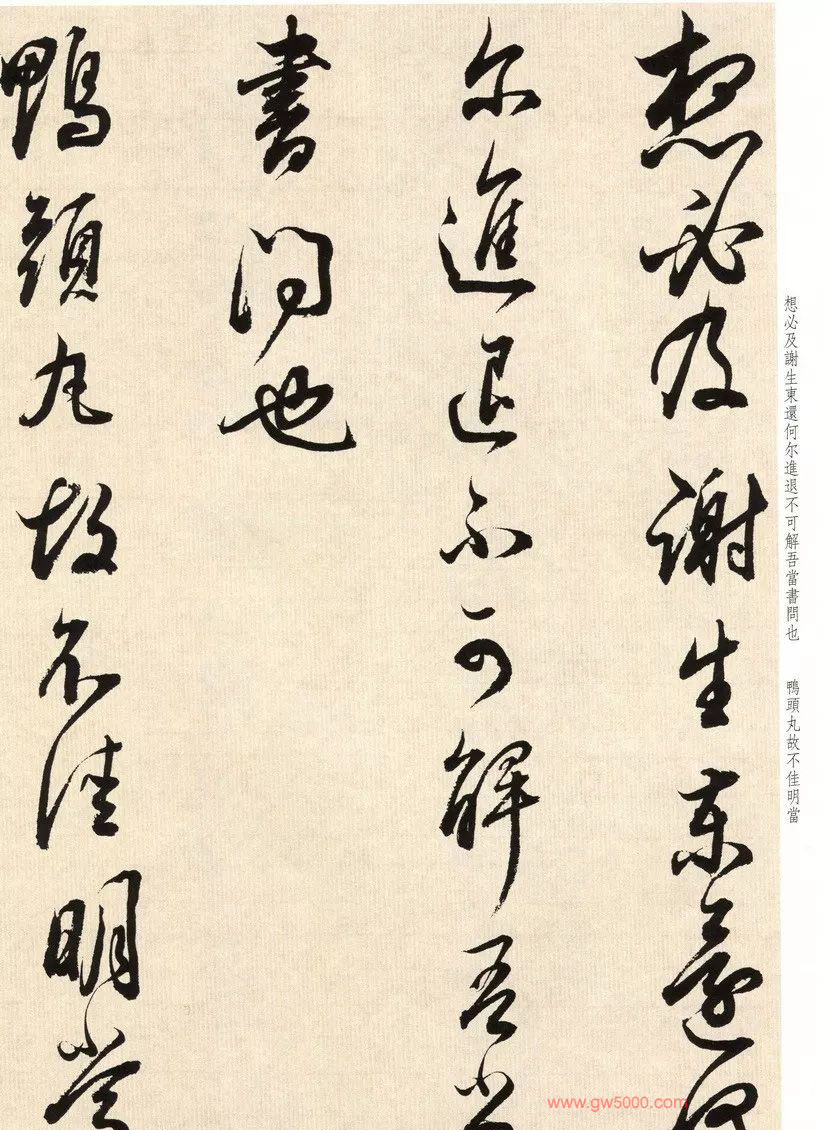 想必及謝生東還何
尔進退不可解吾當
書問也
鴨頭丸故不佳明當
想必及謝生東還何尔進退不可解吾當書問也 鴨頭丸故不佳明當
www.gw5000.com